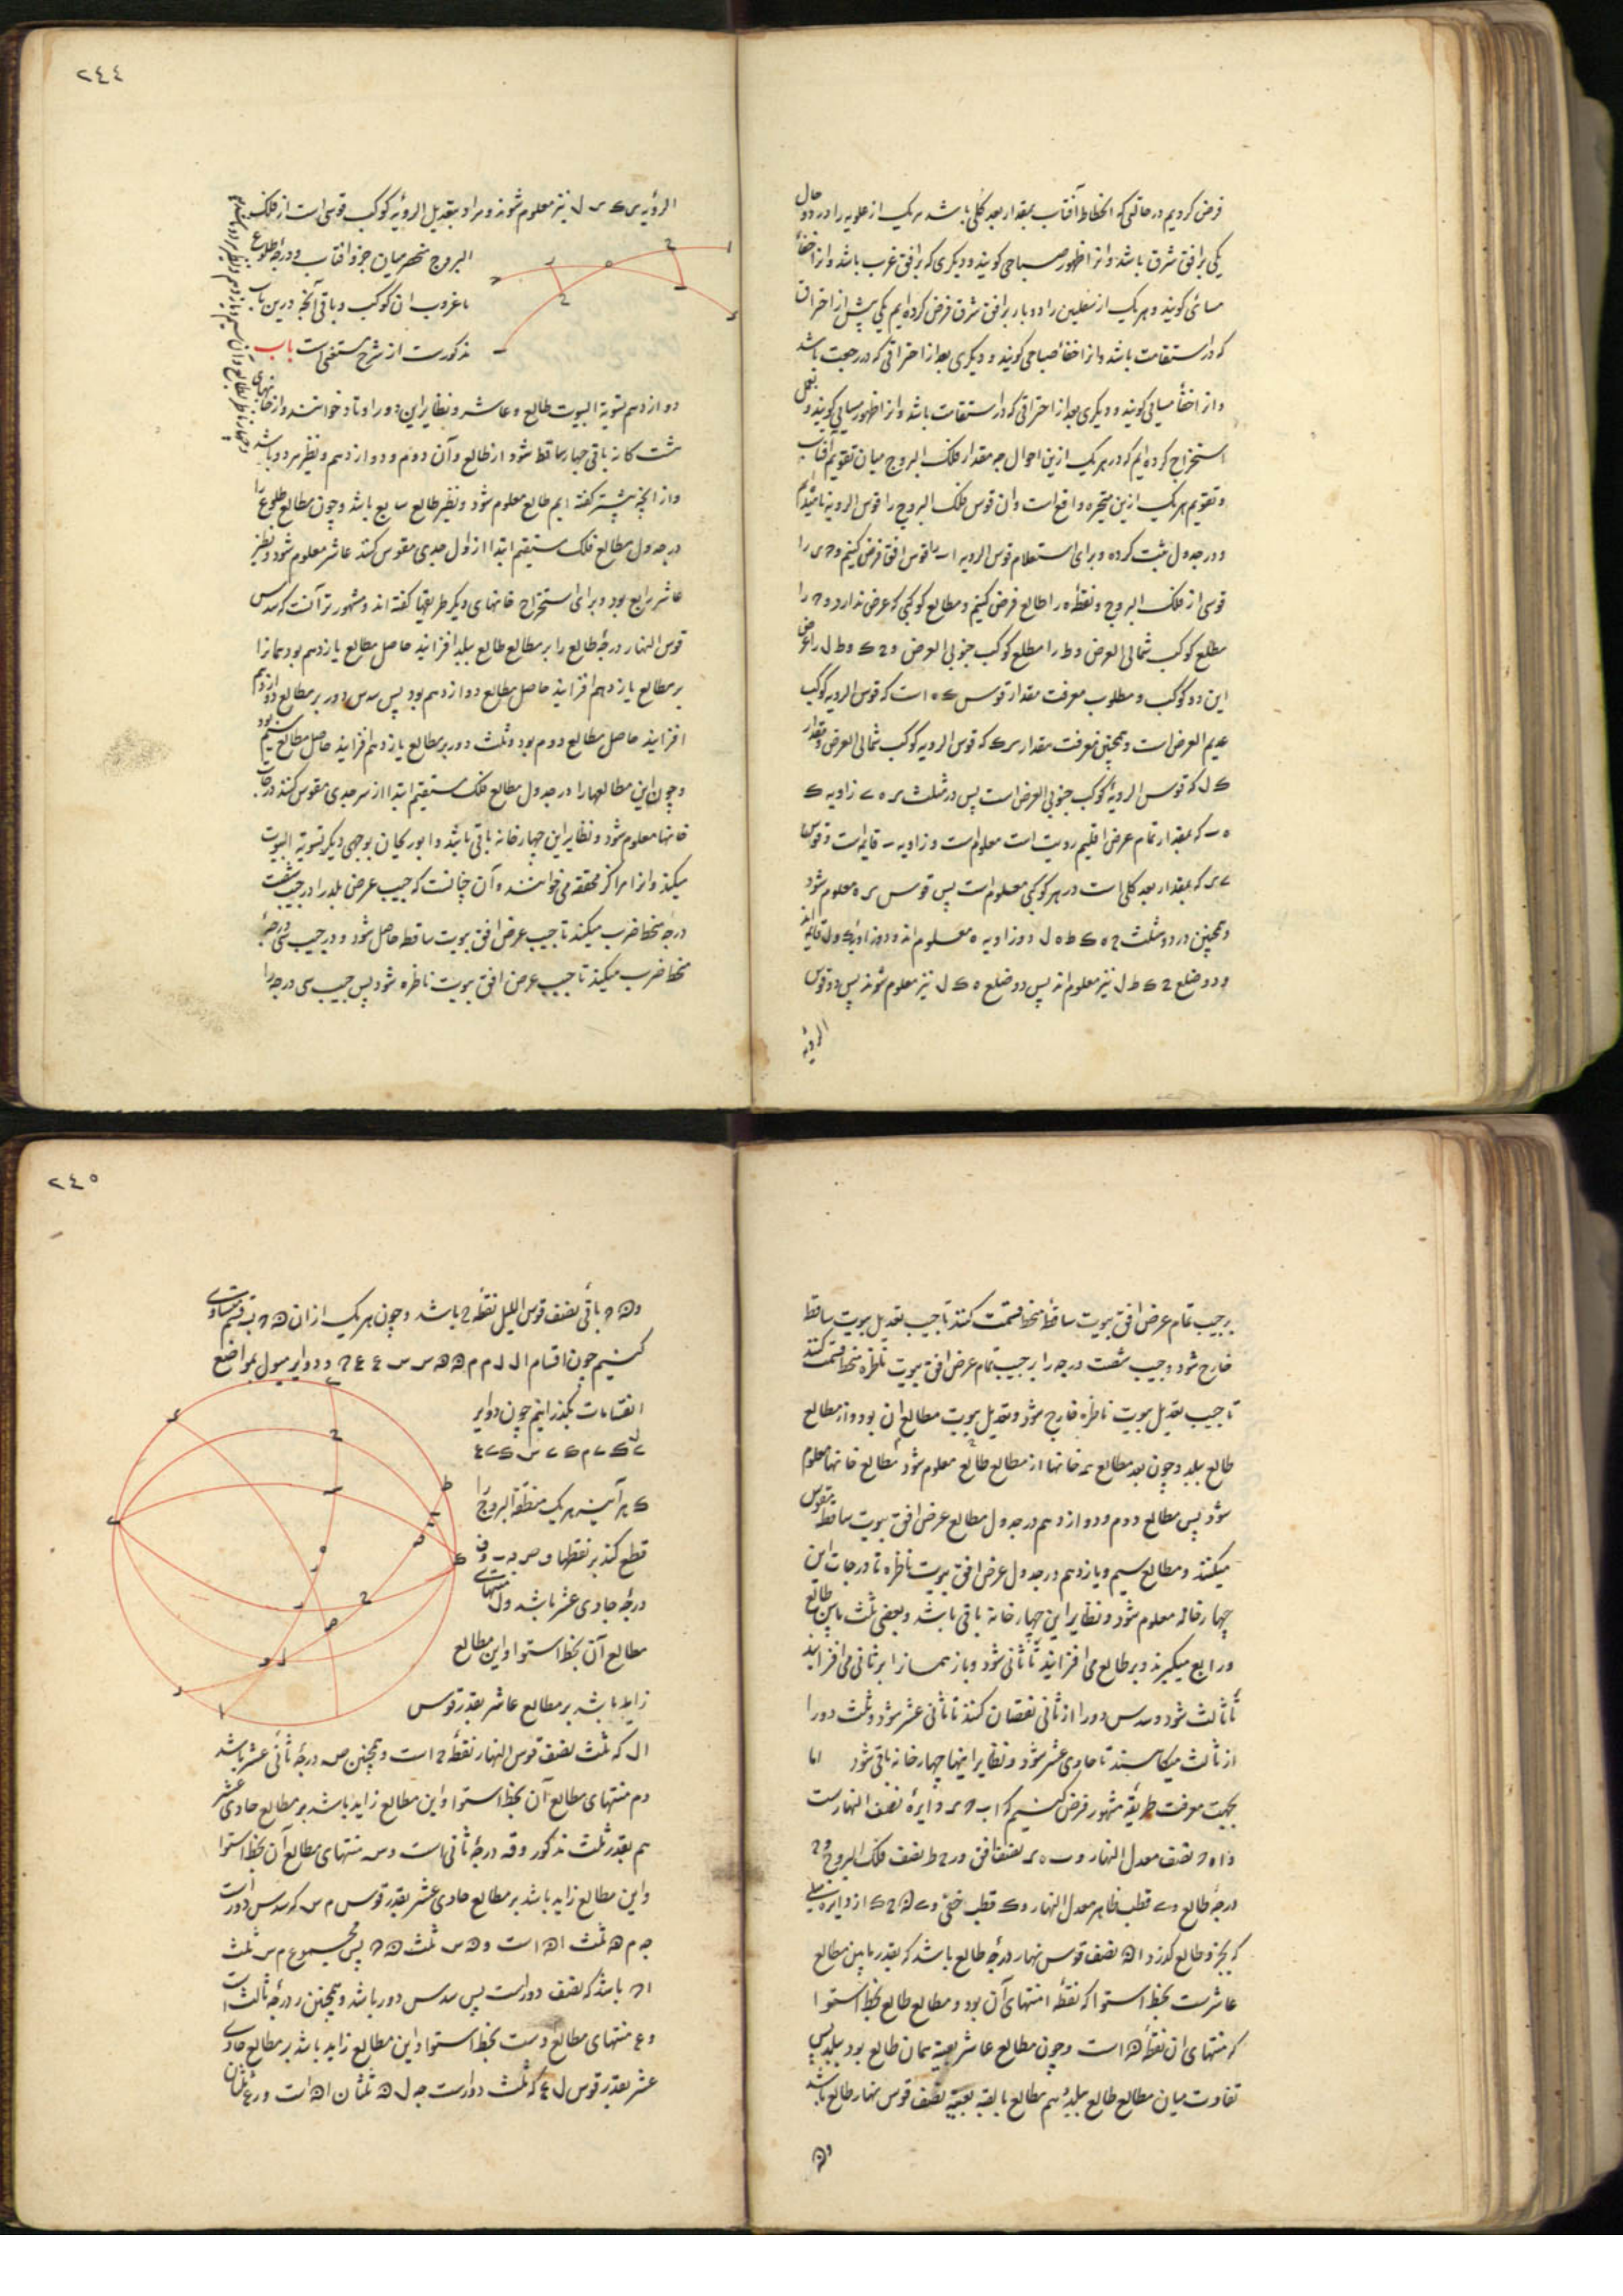 فرض کردیم در حالتی که انحطاط آفتاب بمقدار بعد کلی باشد هر یک از علویه را در دو حال
یکی بر افق شرق باشد و انرا ظهور صباحی کویند و دیکری که بر افق غرب باشد و انرا خفاء
مسائی کویند و هر یک از سفلیین را دو بار بر افق شرق فرض کرده ایم یکی پیش از احتراق
که در استقامت باشد و انرا خفاء صباحی کویند و دیکری بعد از احتراقی که در رجعت باشد
و انرا خفاء مسائی کویند و دیکری بعد از احتراقی که در استقامت باشد و انرا ظهور مسایی کویند و بعمل
استخراج کرده ایم که در هر یک ازین احوال چه مقدار فلک البروج میان تقویم آفتاب
و تقویم هر یک ازین متحیره واقع است وان قوس فلک البروج را قوس الرویه نامیده ایم
و در جدول ثبت کرده و برای استعلام قوس الرویه ا ب را قوس افق فرض کنیم و ح ی را
قوسی از فلک البروج و نقطه ه را طالع فرض کنیم و مطالع کوکبی که عرض ندارد و ح را
مطلع کوکب شمالی العرض و ط را مطلع کوکب جنوبی العرض و ح ک و ط ل را عرض
این دو کوکب و مطلوب معرفت مقدار قوس ه است که قوس الرویه کوکب
عدیم العرض است و همچنین معرفت مقدار ی ک که قوس الرویه کوکب شمالی العرض و مقدار
ل که قوس الرویة کوکب جنوبی العرض است پس در مثلث ی ه زاویه
ه که بمقدار تمام عرض اقلیم رویت است معلوم است و زاویه قایمه است و قوس
ی که بمقدار بعد کلی است در هر کوکبی معلوم است پس قوس ی ه معلوم شود
و همچنین در دو مثلث ح ه ک ط ه ل دو زاویه ه معلوم اند و دو زاویه ک و ل قائمه اند
و دو ضلع ح ک ط ل نیز معلوم اند پس دو ضلع ه ک ل نیز معلوم شوند پس دو قوس
الرویه
٢٤٤
الرؤیه ی ک ی ل نیز معلوم شوند و مراد بتعدیل الرؤیه کوکب قوسی است از فلک
البروج منحصر میان جزو افتاب و درجه طلوع
یا غروب ان کوکب و باقی آنچه درین باب
مذکورست از شرح مستغنی است باب
دوازدهم تسویة البیوت طالع و عاشر و نظایر این دو را اوتاد خوانند و از خانهای
هشت کانه باقی چهار ساقط شود از طالع و آن دوم و دوازدهم و نظیر هر دو باشد
و از انچه پیشتر کفته ایم طالع معلوم شود و نظیر طالع سابع باشد و چون مطالع طلوع را
در جدول مطالع فلک مستقیم ابتدا از اول جدی مقوس کنند عاشر معلوم شود و نظیر
عاشر رابع بود و برای استخراج خانهای دیکر طریقها کفته اند و مشهورتر آنست که سدس
قوس النهار درجه طالع را بر مطالع طالع ببلد افزایند حاصل مطالع یازدهم بود همانرا
بر مطالع یازدهم افزایند حاصل مطالع دوازدهم بود پس سدس دور بر مطالع دوازدهم
افزایند حاصل مطالع دوم بود و ثلث دور بر مطالع یازدهم افزایند حاصل مطالع سیم بود
و چون این مطالعها را در جدول مطالع فلک مستقیم ابتدا از سر جدی مقوس کنند درجات
خانها معلوم شود و نظایر این چهار خانه باقی باشد و ابوریحان بوجهی دیکر تسویة البیوت
میکند و انرا مراکز محققه می خوانند و آن چنانست که جیب عرض بلد را در جیب شصت
درجه منحط ضرب میکند تا جیب عرض افق بیوت ساقط حاصل شود و در جیب سی درجه
منحط ضرب میکند تا جیب عرض افق بیوت ناظره شود پس جیب سی درجه را
بر جیب تمام عرض افق بیوت ساقط منحط قسمت کنند تا جیب تعدیل بیوت ساقط
خارج شود و جیب شصت درجه را بر جیب تمام عرض افق بیوت ناظره منحط قسمت کنند
تا جیب تعدیل بیوت ناظره خارج شود و تعدیل بیوت مطالع ان بود و از مطالع
طالع ببلد و چون بعد مطالع همه خانها از مطالع طالع معلوم شود مطالع خانها معلوم
شود پس مطالع دوم و دوازدهم در جدول مطالع عرض افق بیوت ساقط مقوس
میکنند و مطالع سیم و یازدهم در جدول عرض افق بیوت ناظره تا درجات این
چهار خانه معلوم شود و نظایر این چهار خانه باقی باشد و بعضی ثلث مابین طالع
و رابع میکیرند و بر طالع می افزایند تا ثانی شود و باز همانرا بر ثانی می افزایند
تا ثالث شود و سدس دور را از ثانی نقصان کنند تا ثانی عشر شود و ثلث دور را
از ثالث میکاهند تا حادی عشر شود و نظایر اینها چهار خانه باقی شود اما
بجهت معرفت طریقه مشهور فرض کنیم که ا ب ح ی دایره نصف النهارست
و ا ه ح نصف معدل النهار و ب ه ی نصف افق و ر ح ط نصف فلک البروج و ح
درجه طالع و قطب ظاهر معدل النهار و ک قطب خفی و ح ک از دایره میلی
که بجزو طالع کذرد و ا ن نصف قوس نهار درجه طالع باشد که بقدر مابین مطالع
عاشرست بخط استوا که نقطه ا منتهای آن بود و مطالع طالع بخط استوا
که منتهای ان نقطه ن است و چون مطالع عاشر بعینه همان طالع بود ببلد پس
تفاوت میان مطالع طالع ببلد هم مطالع بعینه نصف قوس نهار طالع باشد
و ن
٢٤٥
و ن ح باقی نصف قوس اللیل نقطه ح باشد و چون هر یک از ا ن ن ح بسه قسم متساوی
کنیم چون اقسام ا ل ل م م ن ن س س ع ع ح و دوایر میول بمواضع
انقسامات بکذرانیم چون دوایر
ک هر آینه هر یک منطقة البروج را
قطع کند بر نقطها
درجه حادی عشر باشد و ل منتهای
مطالع آن بخط استوا و این مطالع
زاید باشد بر مطالع عاشر بقدر قوس
ا ل که ثلث نصف قوس النهار نقطه ح است و همچنین ص درجه ثانی عشر باشد
و م منتهای مطالع آن بخط استوا و این مطالع زاید باشد بر مطالع حادی عشر
هم بقدر ثلث مذکور و قه درجه ثانی است و س منتهای مطالع آن بخط استوا
و این مطالع زاید باشد بر مطالع حادی عشر بقدر قوس م س که سدس دورست
چه م ن ثلث ا ن است و ن س ثلث ن ح پس مجموع م س ثلث
ا ح باشد که نصف دورست پس سدس دور باشد و همچنین ر درجه ثالث است
و ع منتهای مطالع وست بخط استوا و این مطالع زاید باشد بر مطالع حادی
عشر بقدر قوس ل ع که ثلث دورست چه ل ن ثلثان ا ن است و ن ع ثلثان